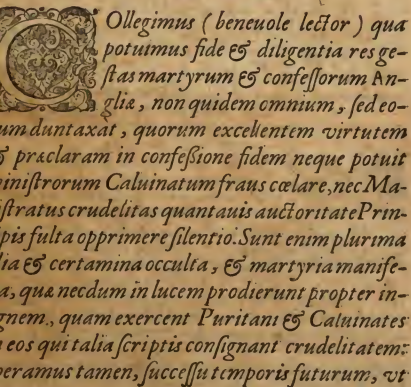 COllegimus (beneuole lector) qua
potuimus fide & diligentia res ge-
stas martyrum & confessorum An-
gliæ, non quidem omnium, sed eo-
um duntaxat, quorum excellentem virtutem
& præclaram in confeßione fidem neque potuit
inistrorum Caluinatum fraus cœlare, nec Ma-
istratus crudelitas quantauis auctoritate Prin-
ipis fulta opprimere silentio. Sunt enim plurima
lia & certamina occulta, & martyria manife-
a, quæ necdum in lucem prodierunt propter in-
gnem, quam exercent Puritani & Caluinates
n eos qui talia scriptis consignant crudelitatem:
peramus tamen, successu temporis futurum, vt